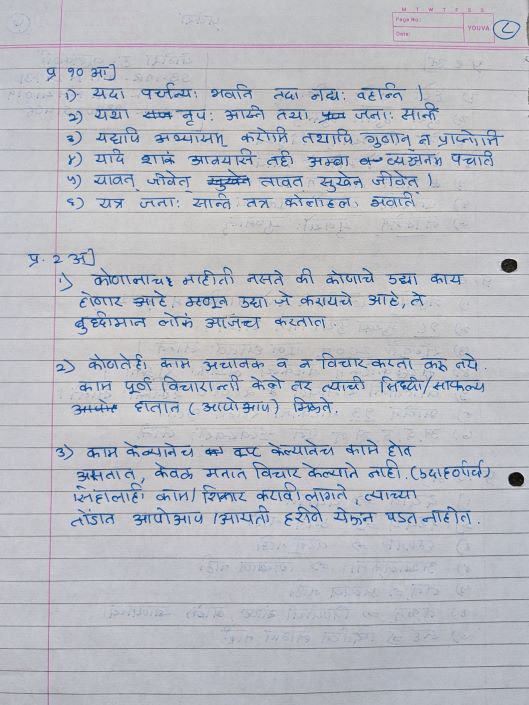 M T W T F S S
Page No.:
Date:
YOUVA
प्र १० आ]
१) यदा पर्जन्यः भवति तदा नद्यः वहन्ति ।
२) यथा नृपः अस्ति तथा जनाः सन्ति
३) यद्यपि अभ्यासम् करोमि तथापि गुणान् न प्राप्नोमि
४) यदि शाकं आनयसि तर्ही अम्बा व्यञ्जनम् पचति
५) यावत् जीवेत् तावत सुखेन जीवेत् ।
६) यत्र जनाः सन्ति तत्र कोलाहलः भवति
प्र. २ अ]
१) कोणालाच माहीती नसते की कोणाचे उद्या काय
होणार आहे म्हणून उद्या जे करायचे आहे, ते
बुध्दीमान लोकं आजच करतात.
२) कोणतेही काम अचानक व न विचार करता करू नये.
काम पूर्ण विचारान्ती केले तर त्याची सिध्दी/साफल्य
हातात (आपोआप) मिळते.
३) काम केल्यानेच केल्यानेच कामे होत
असतात, केवळ मनात विचार केल्याने नाही. (उदाहरणार्थ)
सिंहालाही काम/शिकार करावी लागते, त्याच्या
तोंडात आपोआप/आयती हरीणे येऊन पडत नाहीत.